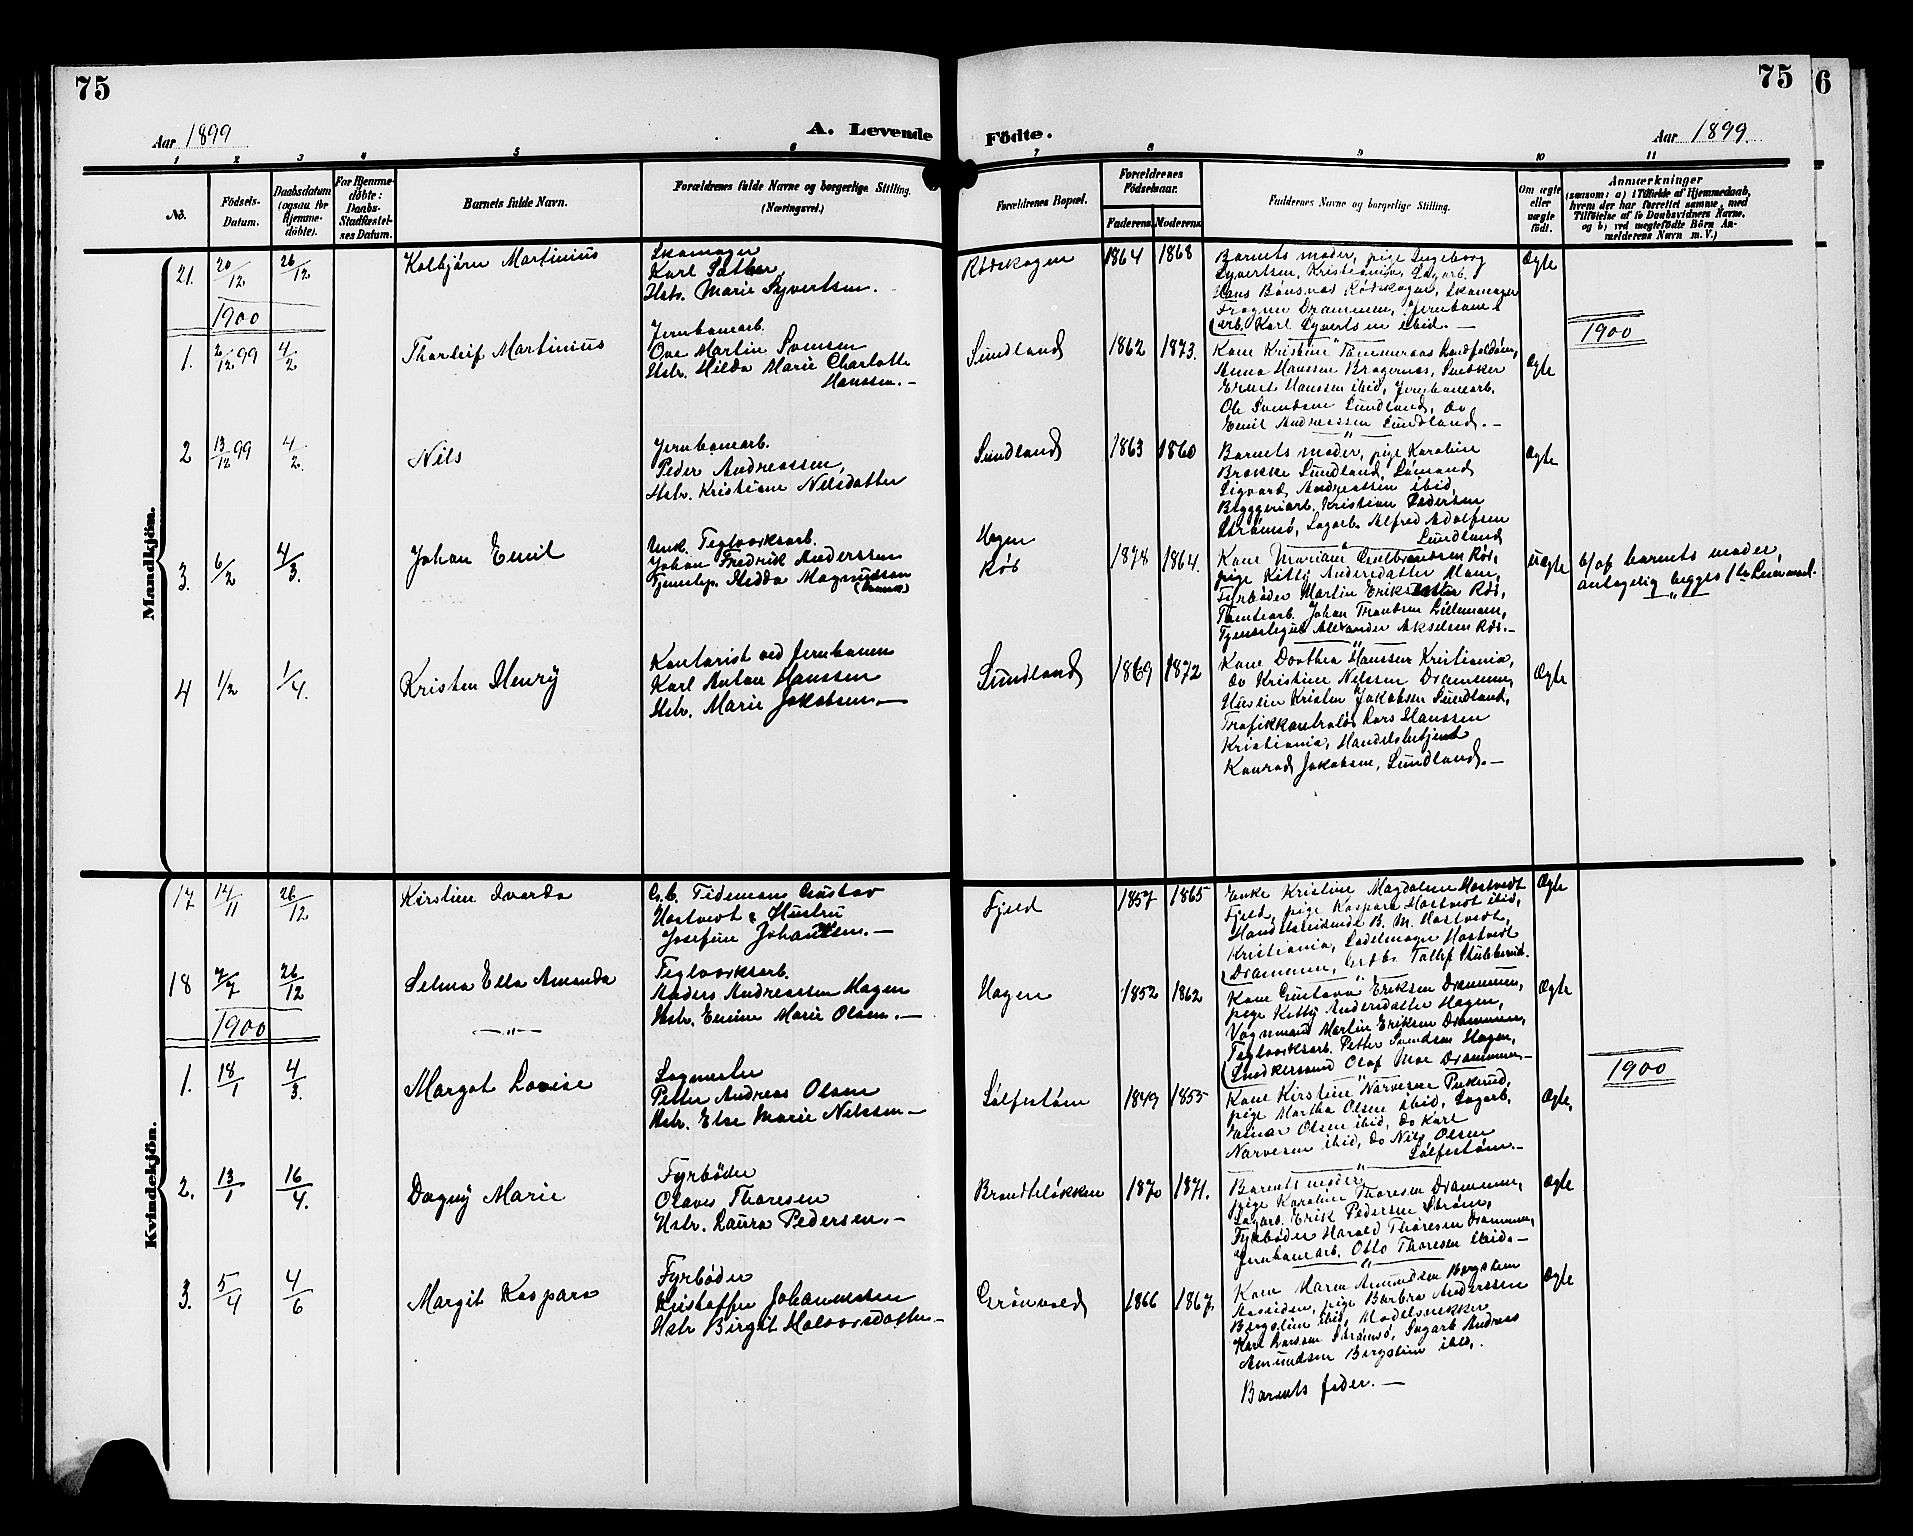 75
75
6
Aar 1899
A. Levende
Födte.
Aar 1899.
1 2 3 4 5 6 7 8 9 10 11
No.
Födsels-
Datum.
Daabsdatum
(ogsaa for
Hjemme-
döbte).
For Hjemme-
döbte:
Daabs-
Stadfæstel-
ses Datum.
Barnets fulde Navn.
Forældrenes fulde Navne og borgerlige Stilling.
(Næringsvei.)
Forældrenes Bopæl.
Forældrenes
Födselsaar.
Faderens. Moderens.
Faddernes Navne og borgerlige Stilling.
Om ægte
eller
uægte
födt.
Anmærkninger
(saasom: a) i Tilfælde af Hjemmedaab,
hvem der har forrettet samme, med
Tilföielse af to Daabsvidners Navne,
og b) ved uægtefödte Börn An-
melderens Navn m. V.)
Mandkjön.
21. 20/12 26/12 Kolbjörn Martinius
Skomager
Karl Sather,
Hstr. Marie Syvertsen.
Rødskogen 1864 1868
Barnets moder, pige Ingeborg
Syvertsen, Kristiania, Sagarb.
Hans Bönsnas Rødskogen, Skomager
Frogner Drammen, Jernbane-
arb. Karl Syvertsen ibid. —
Ægte
1900
1900
1. 2/12 99 4/2 Thorleif Martinius
Jernbanearb.
Ove Martin Svensen
Hstr. Hilda Marie Charlotte
Hanssen. —
Sundland 1862 1873.
Kone Kristine Tommeraas
Anna Hanssen Bragernes, Snedker
Ernst Hanssen ibid, Jernbanearb.
Ole Svendsen Sundland, do
Emil Andreassen Sundland. —
Ægte
2 13/12 99 4/2. Nils
Jernbanearb.
Peder Andreassen,
Hstr. Kristiane Nilsdatter
Sundland 1863 1860
Barnets moder, pige Karoline
Brække Sundland, Sømand
Sigvard Andreassen ibid,
Bryggeriarb. Kristian Pedersen
Strømsø, Sagarb. Alfred Adolfsen
Sundland
Ægte
3. 6/2 4/3. Johan Emil
Unk. Teglværksarb.
Johan Fredrik Anderssen
Tjenestep. Hedda Magnudson
Hagen
Røs
1878 1864.
Kone Mariane Gulbrandsen Røs,
pige Kitty Andersdatter Moen,
Fyrbøder Martin Røs,
Tomtearb. Johan Trondsen Lillemoen,
Tjenestegut Alexander Akselsen Røs. —
uægte
b/of barnets moder,
antagelig begges 1ste Leiermaal.
4 1/2 1/4. Kristen Henry
Kontorist ved Jernbanen
Karl Anton Hanssen
Hstr. Marie Jakobsen. —
Sundland 1869 1872
Kone Dorthea Hanssen Kristiania,
do Kristine Nilssen Drammen,
Huseier Kristen Jakobsen Sundland,
Trafikkontrolør Lars Hanssen
Kristiania, Handelsbetjent
Konrad Jakobsen, Sundland. —
Ægte
Kvindekjön.
17 14/11 26/12 Kirstine Ivarda
G.b. Tideman Gustav
Hostvedt & Hustru
Josefine Johansen. —
Fjeld 1857 1865
Enke Kristine Magdalene Hostvedt
Fjeld, pige Kaspara Hostvedt ibid,
Handelsreisende B. M. Hostvedt,
Kristiania, Sadelmager Hostvedt
Drammen, Grdbr. Tollef Stubberud.
Ægte
18 7/7 26/12 Selma Ella Amanda
Teglværksarb.
Anders Andreassen Hagen
Hstr. Emine Marie Olsen. —
Hagen 1852 1862
Kone Gustava Eriksen Drammen,
pige Kitty Andersdatter Hagen,
Vognmand Martin Eriksen Drammen,
Teglværksarb. Petter Svendsen Hagen,
Snedkersvend Olaf Moe Drammen —
Ægte
1900
1900
1. 18/1 4/3. Margot Lovise
Sagmester
Petter Andreas Olsen
Hstr. Else Marie Nilssen —
Sølfestøen 1849 1855
Kone Kirstine Narvesen Pukerud,
pige Martha Olsen ibid, Sagarb.
Einar Olsen ibid, do Karl
Narvesen ibid, do Nils Olsen
Sølfestøen. —
Ægte,
2. 13/1 16/4. Dagny Marie
Fyrbøder
Olaves Thoresen
Hstr. Laura Pedersen. —
Brandtsløkken 1870 1871.
Barnets moder,
pige Karoline Thoresen Drammen,
Sagarb. Erik Pedersen Strøm,
Fyrbøder Harald Thoresen Drammen,
Jernbanearb. Otto Thoresen ibid. —
Ægte
3. 5/4 4/6 Margit Kaspara
Fyrbøder
Kristoffer Johannessen
Hstr Birgit Halvorsdatter —
Grönvold 1866 1867.
Kone Maren Amundsen Bergslien
pige Barbra Anderssen
Bergslien ibid, Modelsnekker
Karl Larssen Strømsø, Sagarb Andreas
Amundsen Bergslien ibid.
Barnets fader. —
Ægte